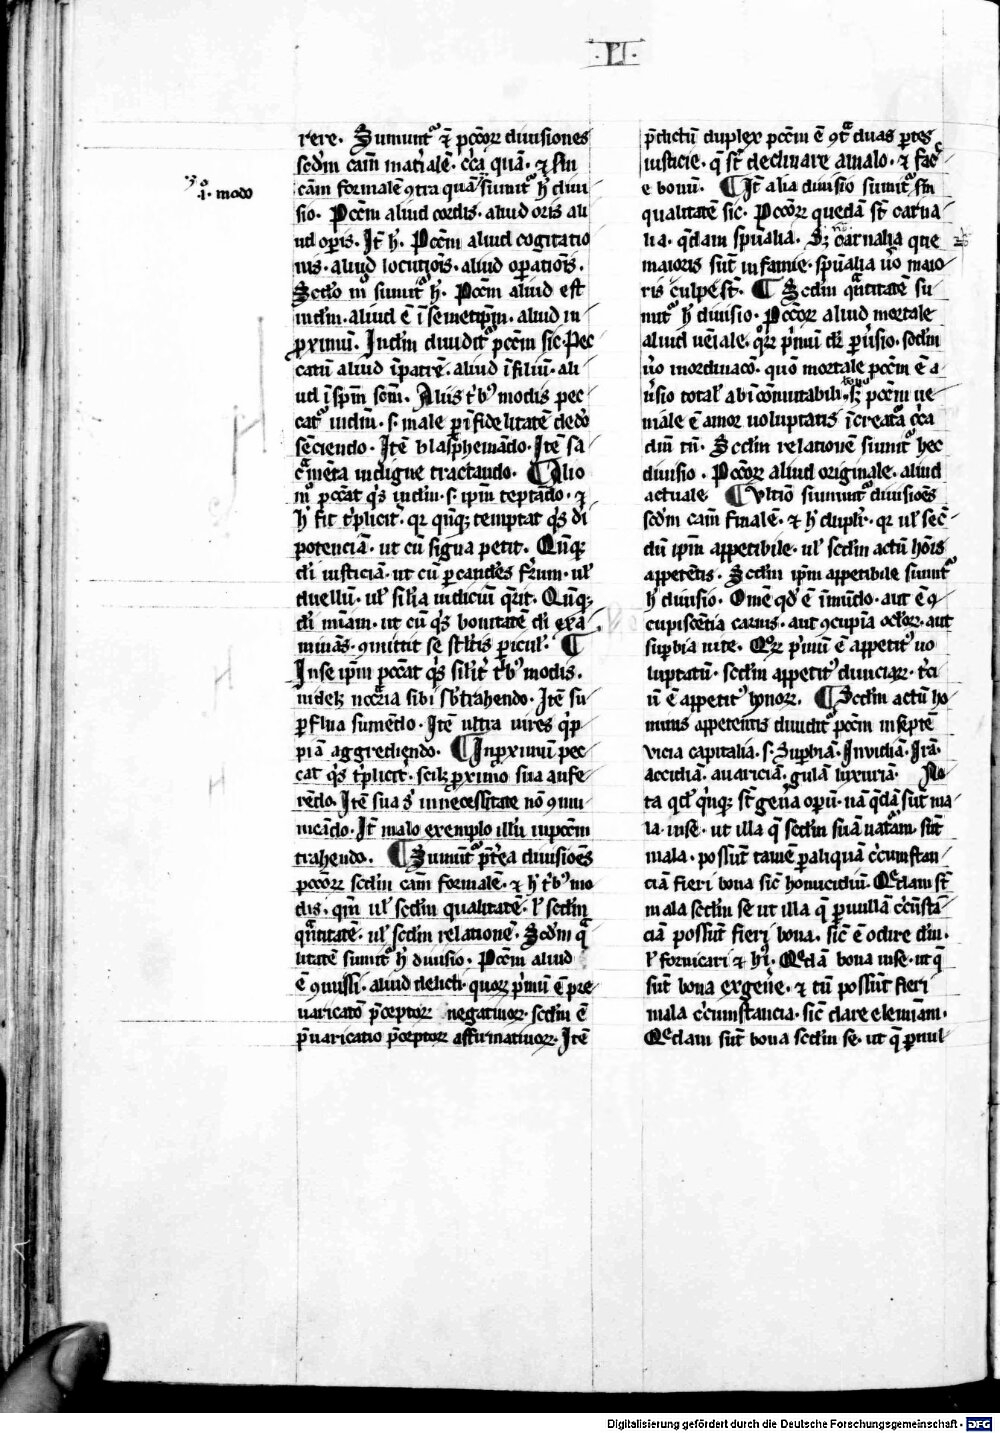 ·LI·
rere. Sumunt᷑ .n. pctoꝝ diuisiones
scd̾m cām mat̾ialē. cc̄a quā. ⁊ sm
·i· modo
cām formalē ꝯtra quā sumit᷑ h̾ diui
sio. Pctm̄ aliud cordis. aliud oris ali
ud oꝑis. Itē h̾. Pctm̄ aliud cogitatio
nis. aliud locutiōis. aliud oꝑatiōis.
Scd̾o mͦ sumit᷑ h̾. Pctm̄ aliud est
in dm̄. aliud ē ī semetip̄m. aliud in
ꝓximū. In dm̄ diuidit᷑ pctm̄ sic. Pec
catū aliud ī patrē. aliud ī filiū. ali
ud ī sp̄m scm̄. Aliis t̾bꝰ modis pec
cat᷑ in dm̄. s. male ꝑ īfidelitatē de deo
sēciendo. Itē blasphemādo. Itē sa
cᷓmēta indigne tractando. ¶ Alio
mͦ pctāt q̾s in dm̄. s. ip̄m teptādo. ⁊
h̾ fit t̾plicit̾. qr qn̄qꝫ temptat q̾s di
potenciā. ut cū signa petit. Qn̄qꝫ
di iusticiā. ut cū ꝑ candēs fr̄um. ul̾
duellū. ul̾ silia iudiciū q̄rit. Qn̄qꝫ
di mīam. ut cū q̾s bonitatē di exa
minās. ꝯmittit se stl̄tis ꝑicul̾. ¶
In se ip̄m pctāt q̾s silit̾ t̾bꝰ modis.
uidelꝫ nccᷓria sibi sb̾trahendo. Itē su
ꝑflua sumēdo. Itē ultra uires q̾p
piā aggrediendo. ¶ In ꝓximū pec
cat q̾s t̾plicit̾. scilꝫ ꝓximo sua aufe
rēdo. Itē sua s̾ in necessitate nō ꝯmu
nicādo. It̄ malo exemplo illū ī pctm̄
trahendo. ¶ Sumūt᷑ pt̾ea diuisiōes
pctoꝝ scd̾m cām formalē. ⁊ h̾ t̾bꝰ mo
dis. qm̄ ul̾ scd̾m qualitatē. l̾ scd̾m
qᷓntitatē. ul̾ scd̾m relationē. Scd̾m qᷓ
litatē sumit᷑ h̾ diuisio. Pctm̄ aliud
ē ꝯmissi. aliud delicti. quoꝝ p̾mū ē pre
uaricatō p̄ceptoꝝ negatiuoꝝ. scd̾m ē
p̄uaricatio p̄ceptoꝝ affirmatiuoꝝ. Itē
p̄dictū duplex pctm̄ ē ꝯtᷓ duas ꝑtes
iusticie. q̄ st̄ declinare a malo. ⁊ fac̾
e bonū. ¶ It̄ alia diuisio sumit᷑ sm
qualitatē sic. Pctoꝝ quedā st̄ carna
lia. q̄dam sp̄ualia. Sꝫ carnalia que
maioris sūt infamie. sp̄ualia ūo maio
ris culpe st̄. ¶ Scd̾m qᷓntitatē su
mit᷑ h̾ diuisio. Pctoꝝ aliud mortale
aliud ueīale. qͦꝝ p̾mū dr̄ ꝑu̾sio. scd̾m
ūo inordinacō. quō mortale pctm̄ ē a
u̾sio total̾ ab incōmutabili bono. sꝫ pctm̄ ue
niale ē amor uoluptatis ī creata cc̄a
dm̄ tn̄. Scd̾m relationē sumit᷑ hec
diuisio. Pctoꝝ aliud originale. aliud
actuale ¶ Vltiō sumunt᷑ diuisiōes
scd̾m cām finalē. ⁊ h̾ duplr̾. qr ul̾ sec̄
dū ip̄m appetibile. ul̾ scd̾m actū hōis
appetētis. Scd̾m ip̄m appetibile sumit᷑
h̾ diuisio. Omē qd̾ ē ī mūdo. aut ē ꝯ
cupiscētia carnis. aut ꝯcupīa oclōꝝ. aut
suꝑbia uite. Qͦꝝ p̾mū ē appetitꝰ uo
luptatū. scd̾m appetitꝰ diuiciaꝝ. t̾ci
ū ē appetitꝰ honoꝝ. ¶ Scd̾m actū ho
minis appetentis diuidit᷑ pctm̄ in septē
vicia capitalia. s. Suꝑbiā. Inuidiā. Irā.
accidiā. auariciā. gulā luxuriā. No
ta qd̾ q̾nqꝫ st̄ gen̾a opeꝝ. nā q̄dā sūt ma
la in se. ut illa q̄ scd̾m suā natᷓm. sūt
mala. possūt tamē ꝑ aliquā c̾cumstan
ciā fieri bona sic̄ homicidiū. Qͤdam st̄
mala scd̾m se ut illa q̄ ꝑ nullā c̾cūstā
ciā possūt fieri bona. sic̄ ē odire dm̄.
l̾ fornicari ⁊ hi̾. Qͤdā bona in se. ut q̄
sūt bona ex gen̾e. ⁊ tn̄ possūt fieri
mala c̾cumstancia. sic̄ dare elemīam.
Qͤdam sūt bona scd̾m se. ut q̄ ꝑ nul
Digitalisierung gefördert durch die Deutsche Forschungsgemeinschaft · DFG